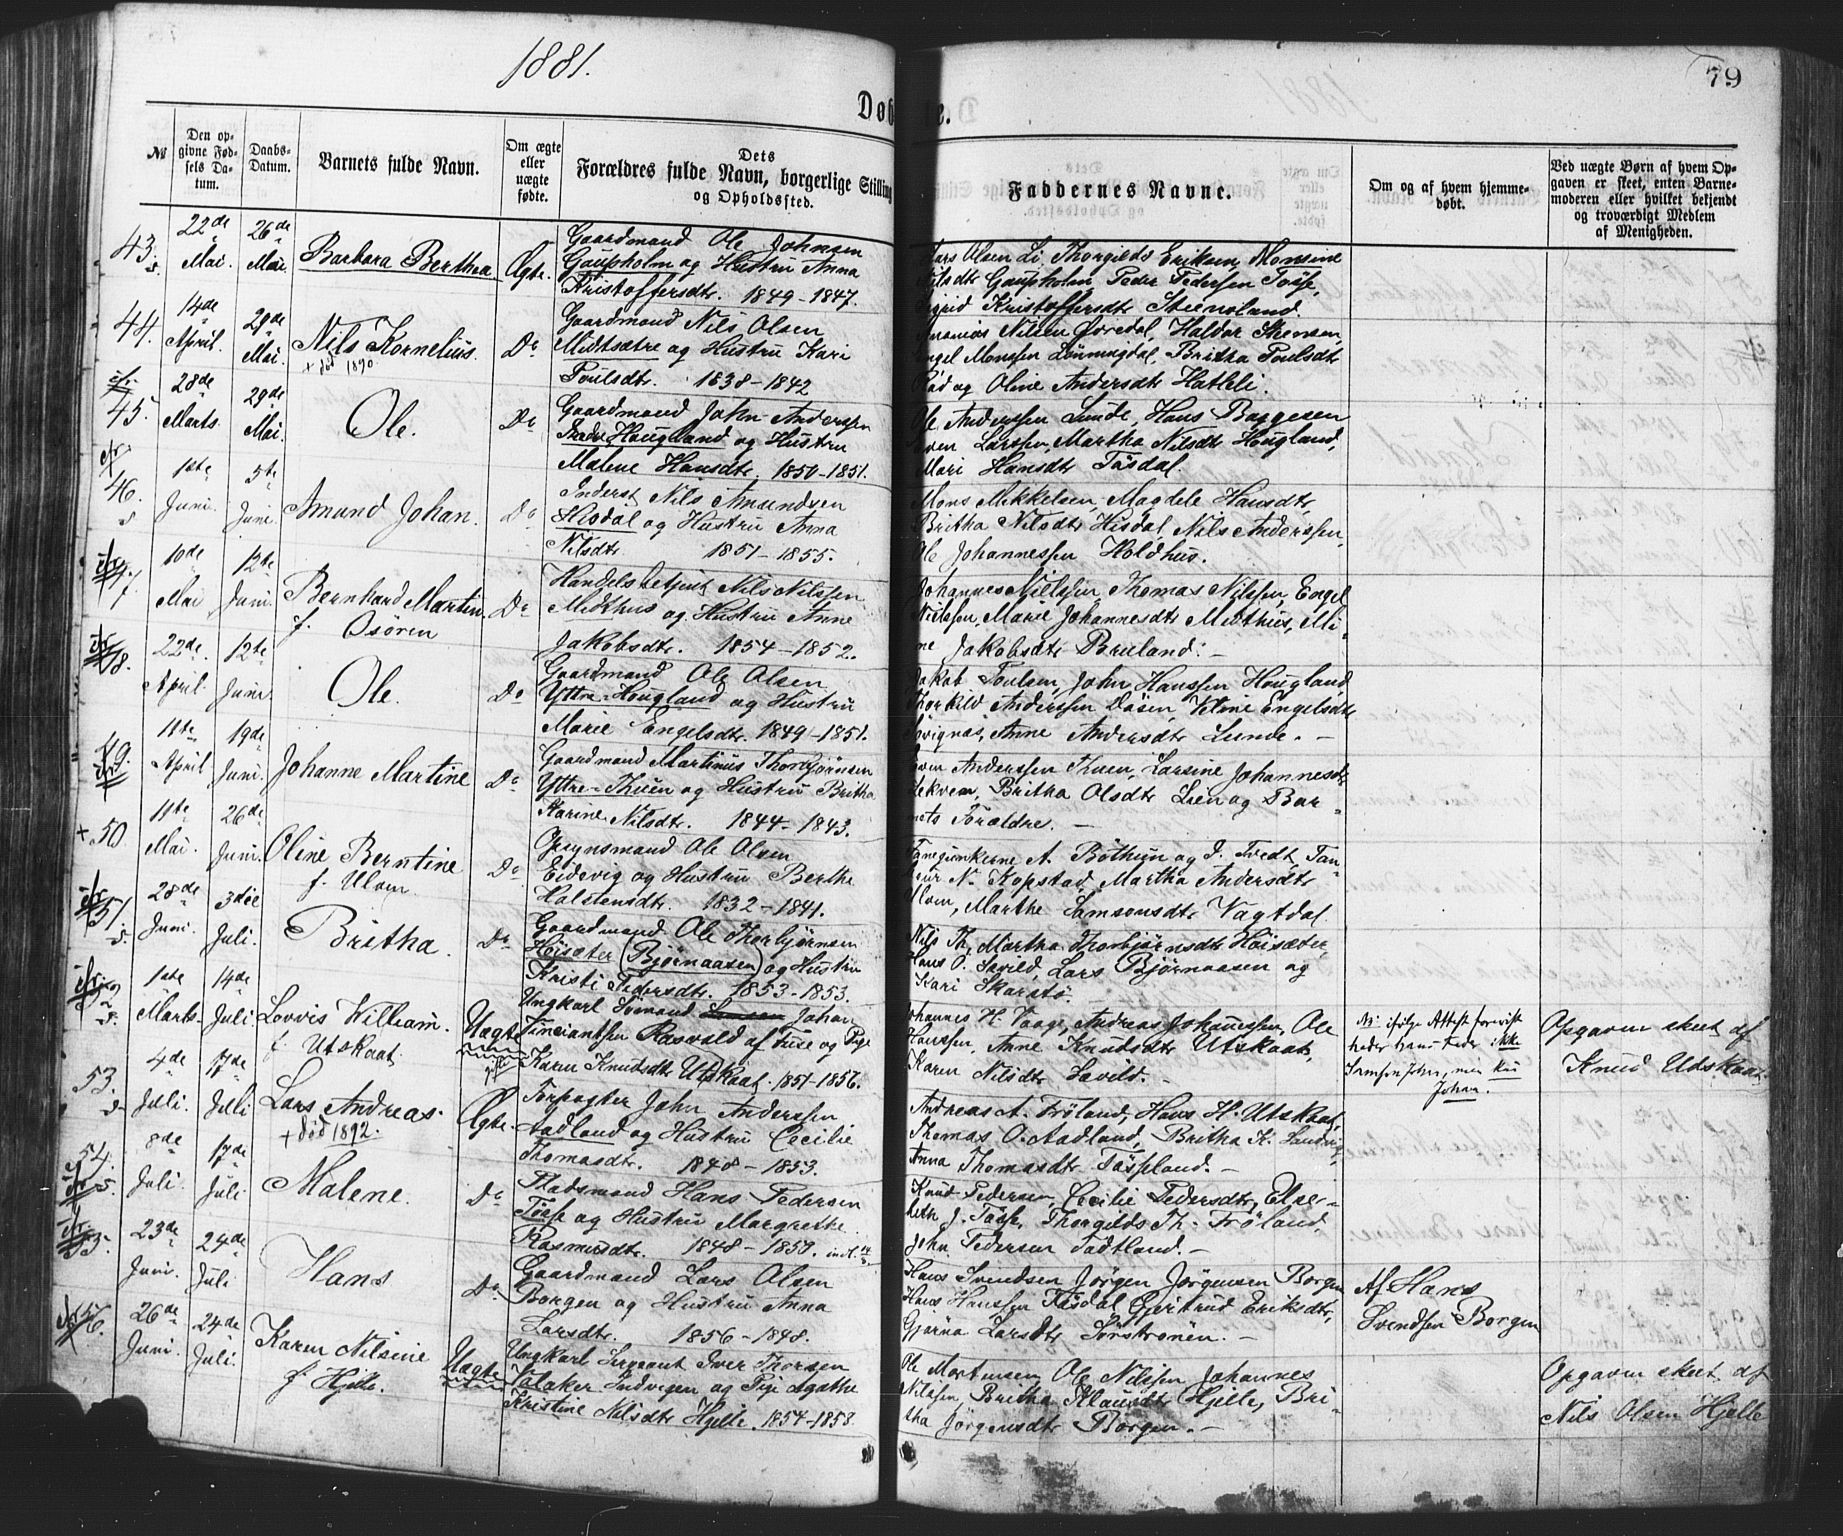 1881.
79
Døbte.
№
Den opgivne Fødsels Datum.
Daabs-Datum.
Barnets fulde Navn.
Om ægte eller uægte fødte.
Dets Forældres fulde Navn, borgerlige Stilling og Opholdsfted.
Faddernes Navne.
Om og af hvem hjemmedøbt.
Ved uægte Børn af hvem Opgaven er skeet, enten Barnemoderen eller hvilket bekjendt og troværdigt Medlem af Menigheden.
43. 22de Mai. 26de Mai. Barbara Berthea Ægte.
Gaardmand Ole Johnsen
Gaupholm og Hustru Anna
Kristoffersdtr. 1849-1847.
Lars Olsen Li, Thorgilds Eriksen, Monsine
Nilsdtr Gaupholm, Peder Pedersen Tøsse,
Sigrid Kristoffersdtr Steensland.
44. 14de April. 29de Mai. Nils Kornelius. Do
+ død 1890.
Gaardmand Nils Olsen
Midtsætre og Hustru Kari
Poulsdtr. 1838-1842
Ananias Nilsen Øvredal, Haldor Steensen,
Engel Monssen Lønningdal, Britha Poulsdtr
Rød og Oline Andersdtr Hatleli.
45. 28de Marts. 29de Mai. Ole. Do
Gaardmand John Anderssen
Hougland og Hustru
Malene Hansdtr. 1850-1851.
Ole Anderssen Lunde, Hans Baggesen
Sven Larssen, Martha Nilsdtr Hougland,
Mari Hansdtr Tøsdal.
46. 1ste Juni. 5te Juni. Amund Johan. Do
Inderst Nils Amundsen
Hisdal og Hustru Anna
Nilsdtr 1851-1855.
Mons Mikkelsen, Magdele Hansdtr,
Britha Nilsdtr Hisdal, Nils Anderssen,
Ole Johannessen Holdhus.
47. 10de Mai 12te Juni. Bernhard Martin. Do
f. Osøren
Handelsbetjent Nils Nilssen
Midthus og Hustru Anne
Jakobsdtr. 1854-1852.
Johannes Nilssen, Thomas Nilssen, Engel
Nielssen, Marie Johannesdtr Midthus, Mi-
ne Jakobsdtr Bruland. -
48. 22de April. 12te Juni. Ole. Do
Gaardmand Ole Olsen
Yttre-Hougland og Hustru
Marie Engelsdtr. 1849-1851.
Jakob Poulsen, John Hanssen Hougland,
Thorkild Anderssen Døsen, Engelsdtr
Anne Andersdtr Lunde. -
49. 11te April 19de Juni. Johanne Martine Do
Gaardmand Martinus Thorbjørnsen
Yttre-Thuen og Hustru Britha
Karine Nilsdtr. 1844-1843.
Sven Anderssen Thuen, Larsine Johannesdtr
Lekven, Britha Olsdtr Lien og Bar-
nets Forældre. -
+ 50 11te Mai. 26de Juni. Oline Berntine Do
f. Ulven
Opsynsmand Ole Olsen
Eidevig og Hustru Berthe
Halstensdtr. 1832-1841.
A. Bøthun og J. Tvedt, Tan-
N. Kopstad, Martha Andersdtr
Ulven, Marthe Samsonsdtr Vagtdal.
51. 28de Juni. 3die Juli. Britha. Do
Gaardmand Ole Thorbjørnsen
Høisæter (Bjørnaasen) og Hustru
Kristi Pedersdtr. 1853-1853.
Nils Th, Martha Thorbjørnsdtr Høisæter,
Hans O. Søvild, Lars Bjørnaasen og
Kari Skarstø.
52 1ste Marts. 14de Juli. Lovvis William. Uægte
f Utskaat.
Ungkarl Sømand Johan
Rosvald af Fuse og Pige
Karen Knudsdtr Utskaat. 1851-1856.
Johannes H. Vaage, Andreas Johannessen, Ole
Hanssen, Anne Knudsdtr Utskaat,
Karen Nilsdtr Søvild.
N: ifølge Attest forevist
heder hans Fader ikke
Samson John, men kun
Johan.
Opgaven skeet af
Knud Utskaat.
53. 4de Juli. 17de Juli Lars Andreas. Ægte.
+ død 1892.
Forpagter John Anderssen
Aadland og Hustru Cecilie
Thomasdtr. 1848-1853.
Andreas A. Frøland, Hans H. Utskaat,
Thomas O. Aadland, Britha K. Sandvig,
Anna Thomasdtr Tøssland. -
54. 8de Juli. 17de Juli Malene. Do
Pladsmand Hans Pedersen
Tøsse og Hustru Margrethe
Rasmusdtr. 1848-1850.
Knud Pedersen, Cecilie Pedersdtr, Else-
beth J. Tøsse, Thorgilds Th. Frøland,
John Pedersen Tadtland. -
55. 23de Juni. 24de Juli Hans Do
Gaardmand Lars Olsen
Borgen og Hustru Anna
Larsdtr. 1856-1848.
Hans Svendsen, Jørgen Jørgensen Borgen
Hans Hanssen Tøsdal, Gjertrud Eriksdtr,
Gjøma Larsdtr Sørstrønen. -
Af Hans
Svendsen Borgen
56. 26de Juni. 24de Juli. Karen Nilsine Uægte
f. Hjelle.
Ungkarl Sergeant Iver Thorsen
Valaker Indvigen og Pige Agathe
Kristine Nilsdtr Hjelle. 1854-1858.
Ole Mortensen, Ole Nilssen, Johannes
Nilssen, Britha Klausdtr Hjelle, Bri-
tha Jørgensdtr Borgen. -
Opgaven skeet af
Nils Olsen Hjelle